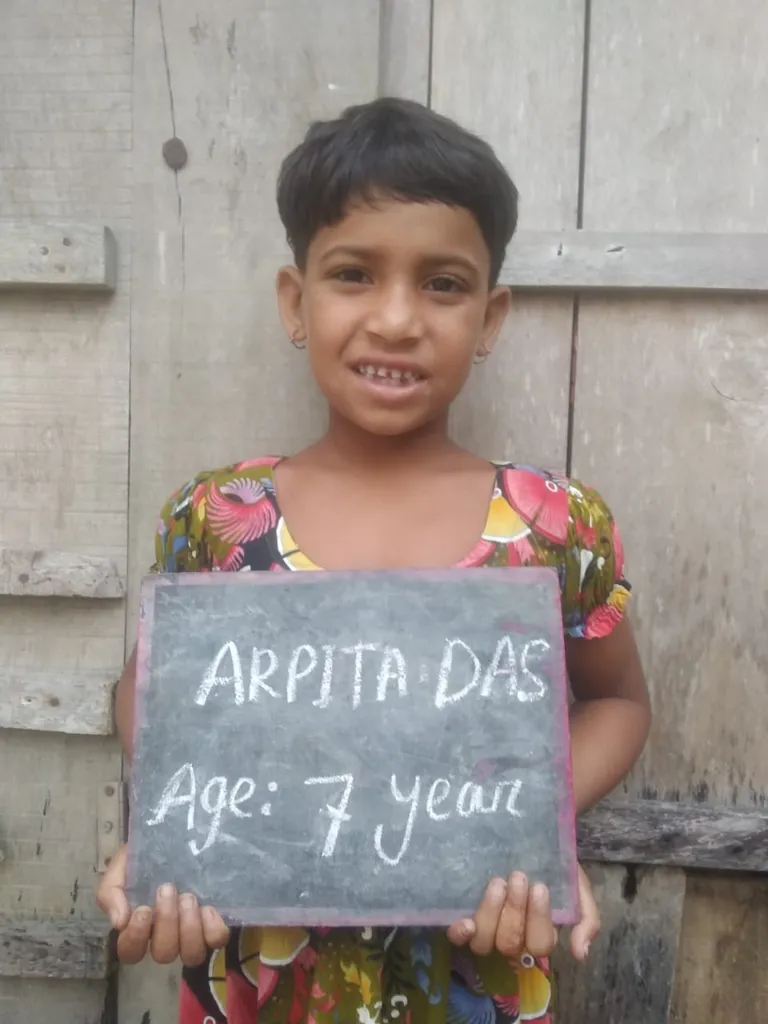 ARPITA DAS
Age: 7 year